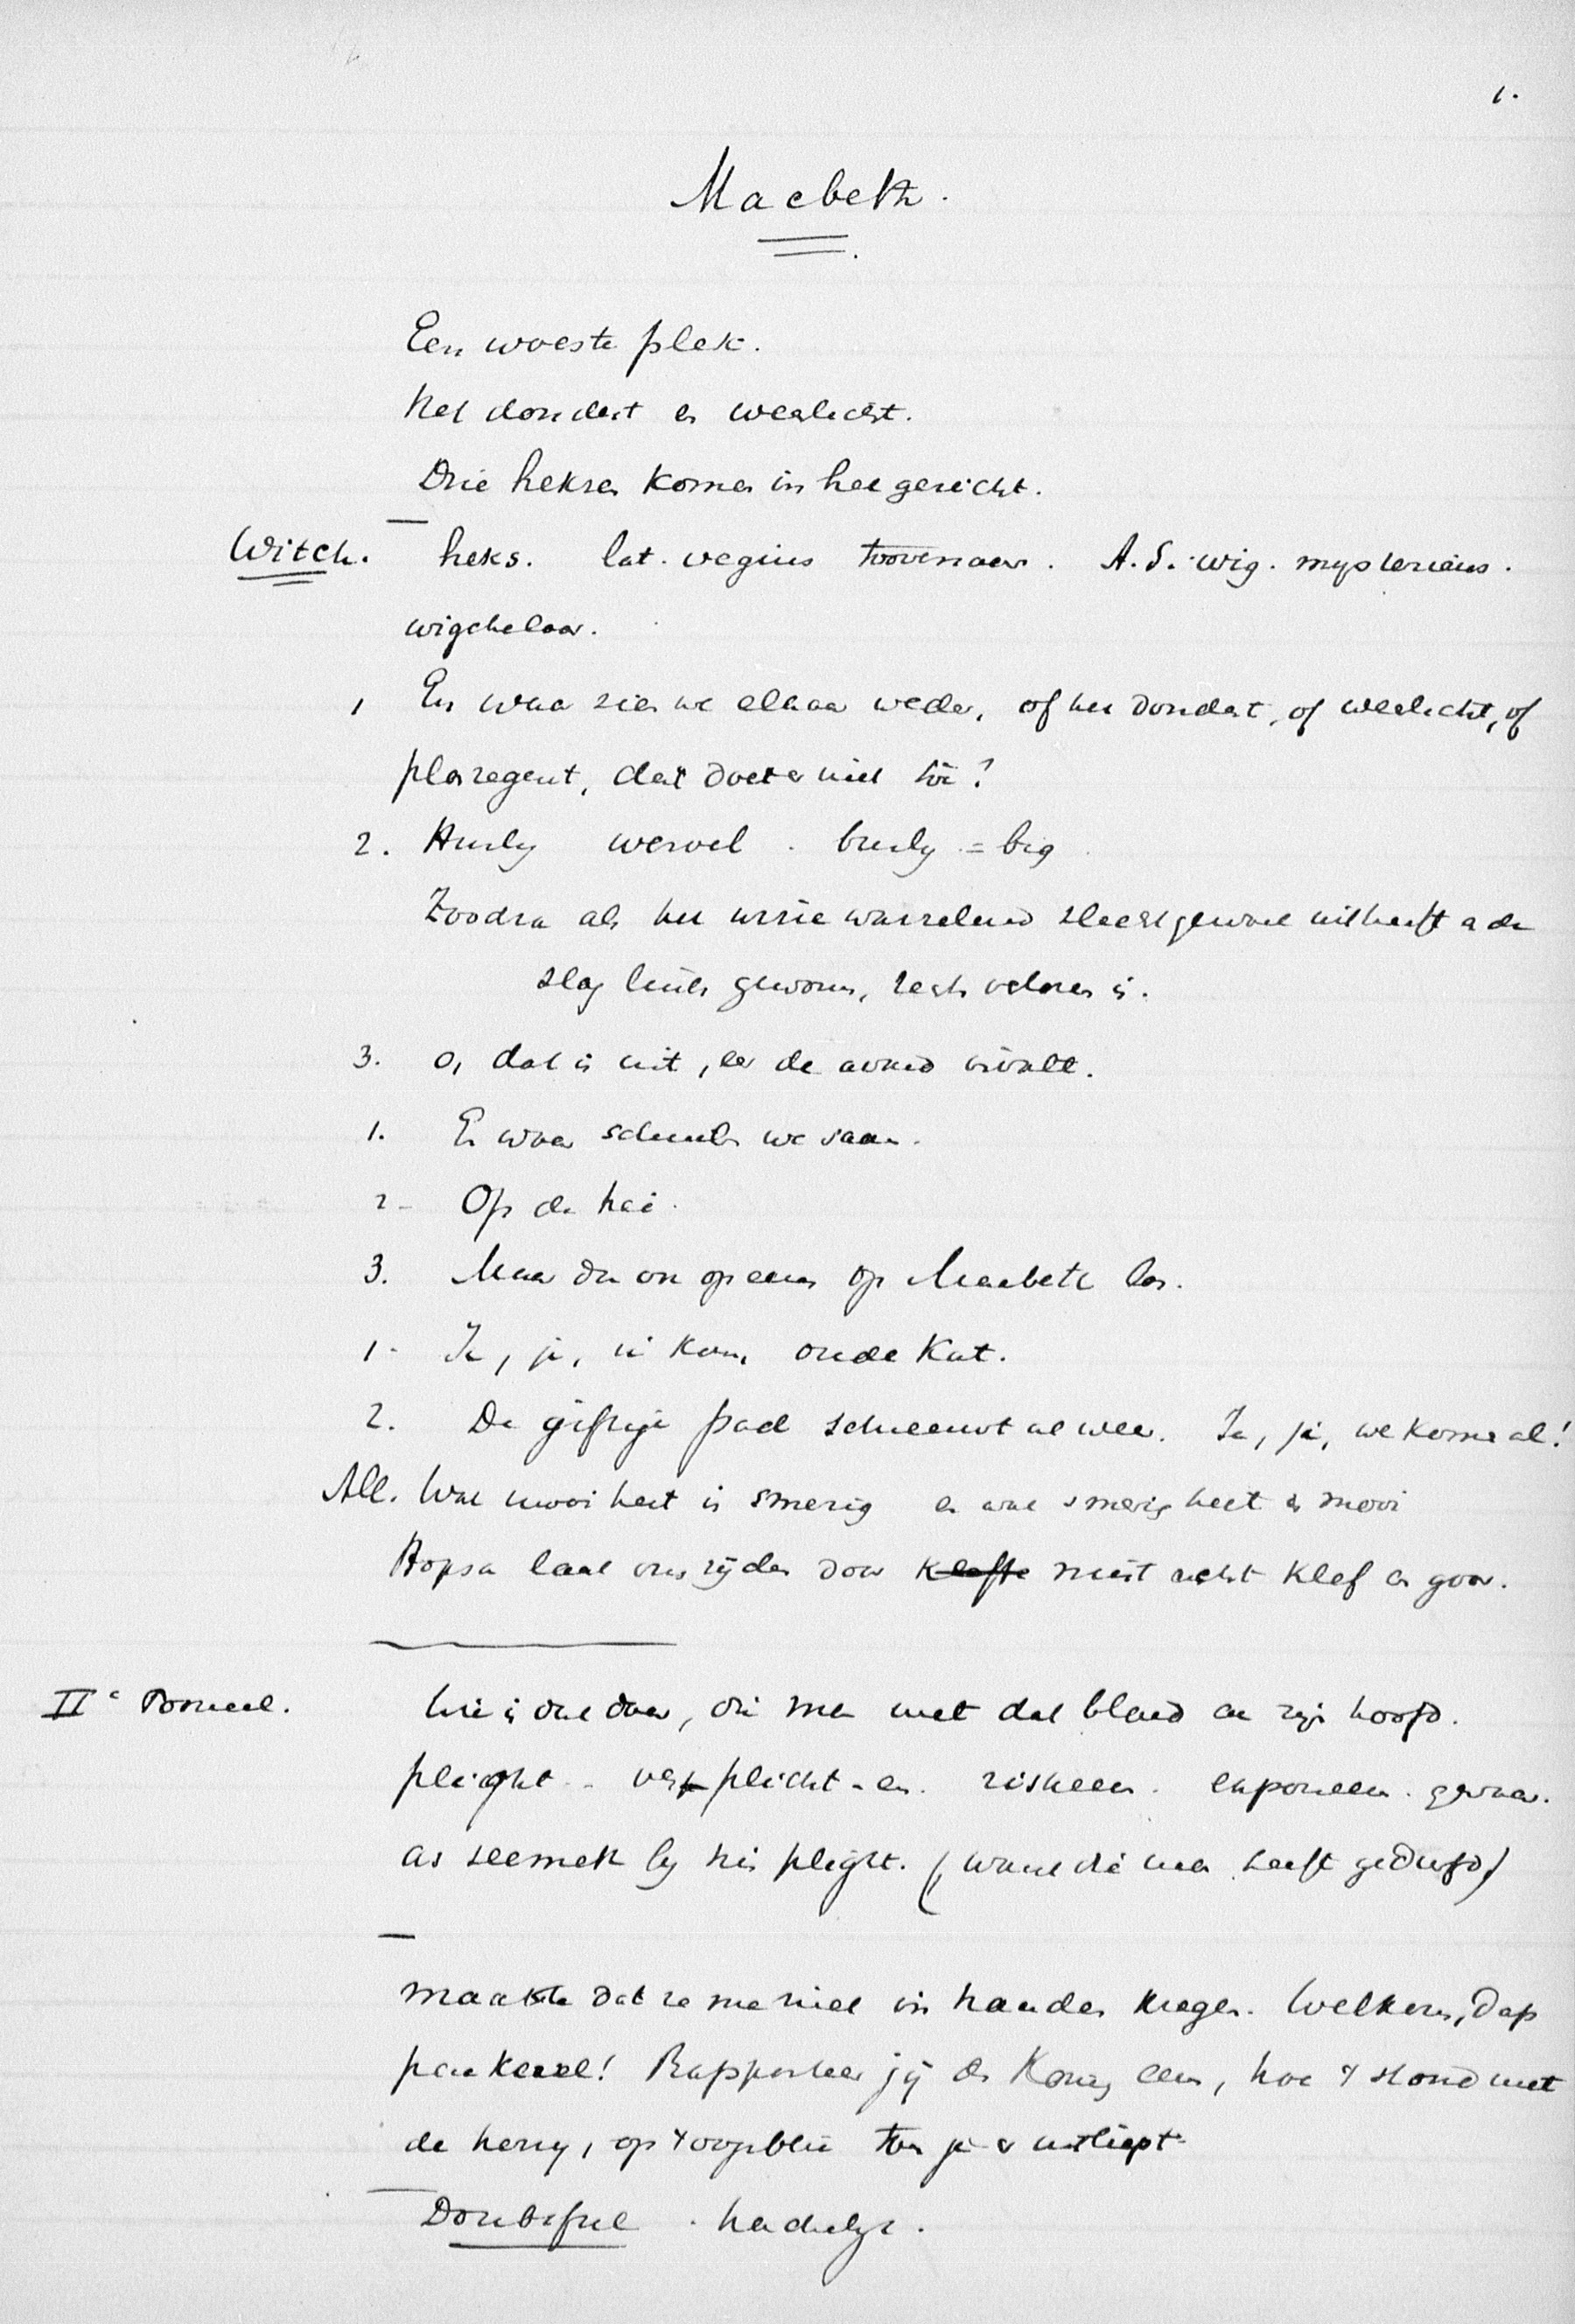 1.
Macbeth.
Een woeste plek.
het dondert en weerlicht.
Drie heksen komen in het gezicht.
Witch. heks. lat. vegius toovenaar. A.S. wig. mysterieus.
wigchelaar.
1 En waar zien we elkaar weder, of het dondert, of weerlicht, of
plasregent, dat doet er niet toe?
2. Hurly wervel. burly = big
Zoodra als het warrelend uit heeft en de
slag gewonnen, verloren is.
3. O, dat is uit, eer de avond invalt.
1. En waar schuilen we saam.
2 - Op de hei.
3. Maar dan opeens op Macbeth los.
1 - Ja, ja, ik kom, oude kat.
2. De giftige pad schreeuwt al weer. Ja, ja, we komen al!
All. Wat mooi heet is smerig en wat smerig heet is mooi
Hopsa laat ons rijden door klefte mist klef en goor.
IIe Tooneel. Wie is dat daar, die man met dat bloed aan zijn hoofd.
plight - verplicht-en. riskeeren. exponeeren. gevaar.
as seemeth by his plight. (want die man heeft gedurfd)
maakte dat ze me niet in handen kregen. Welkom, dap
pere kerel! Rapporteer jij den Koning eens, hoe 't stond met
de herrie, op 't oogenblik toen je er uitliept
Doubtful. hachelijk.